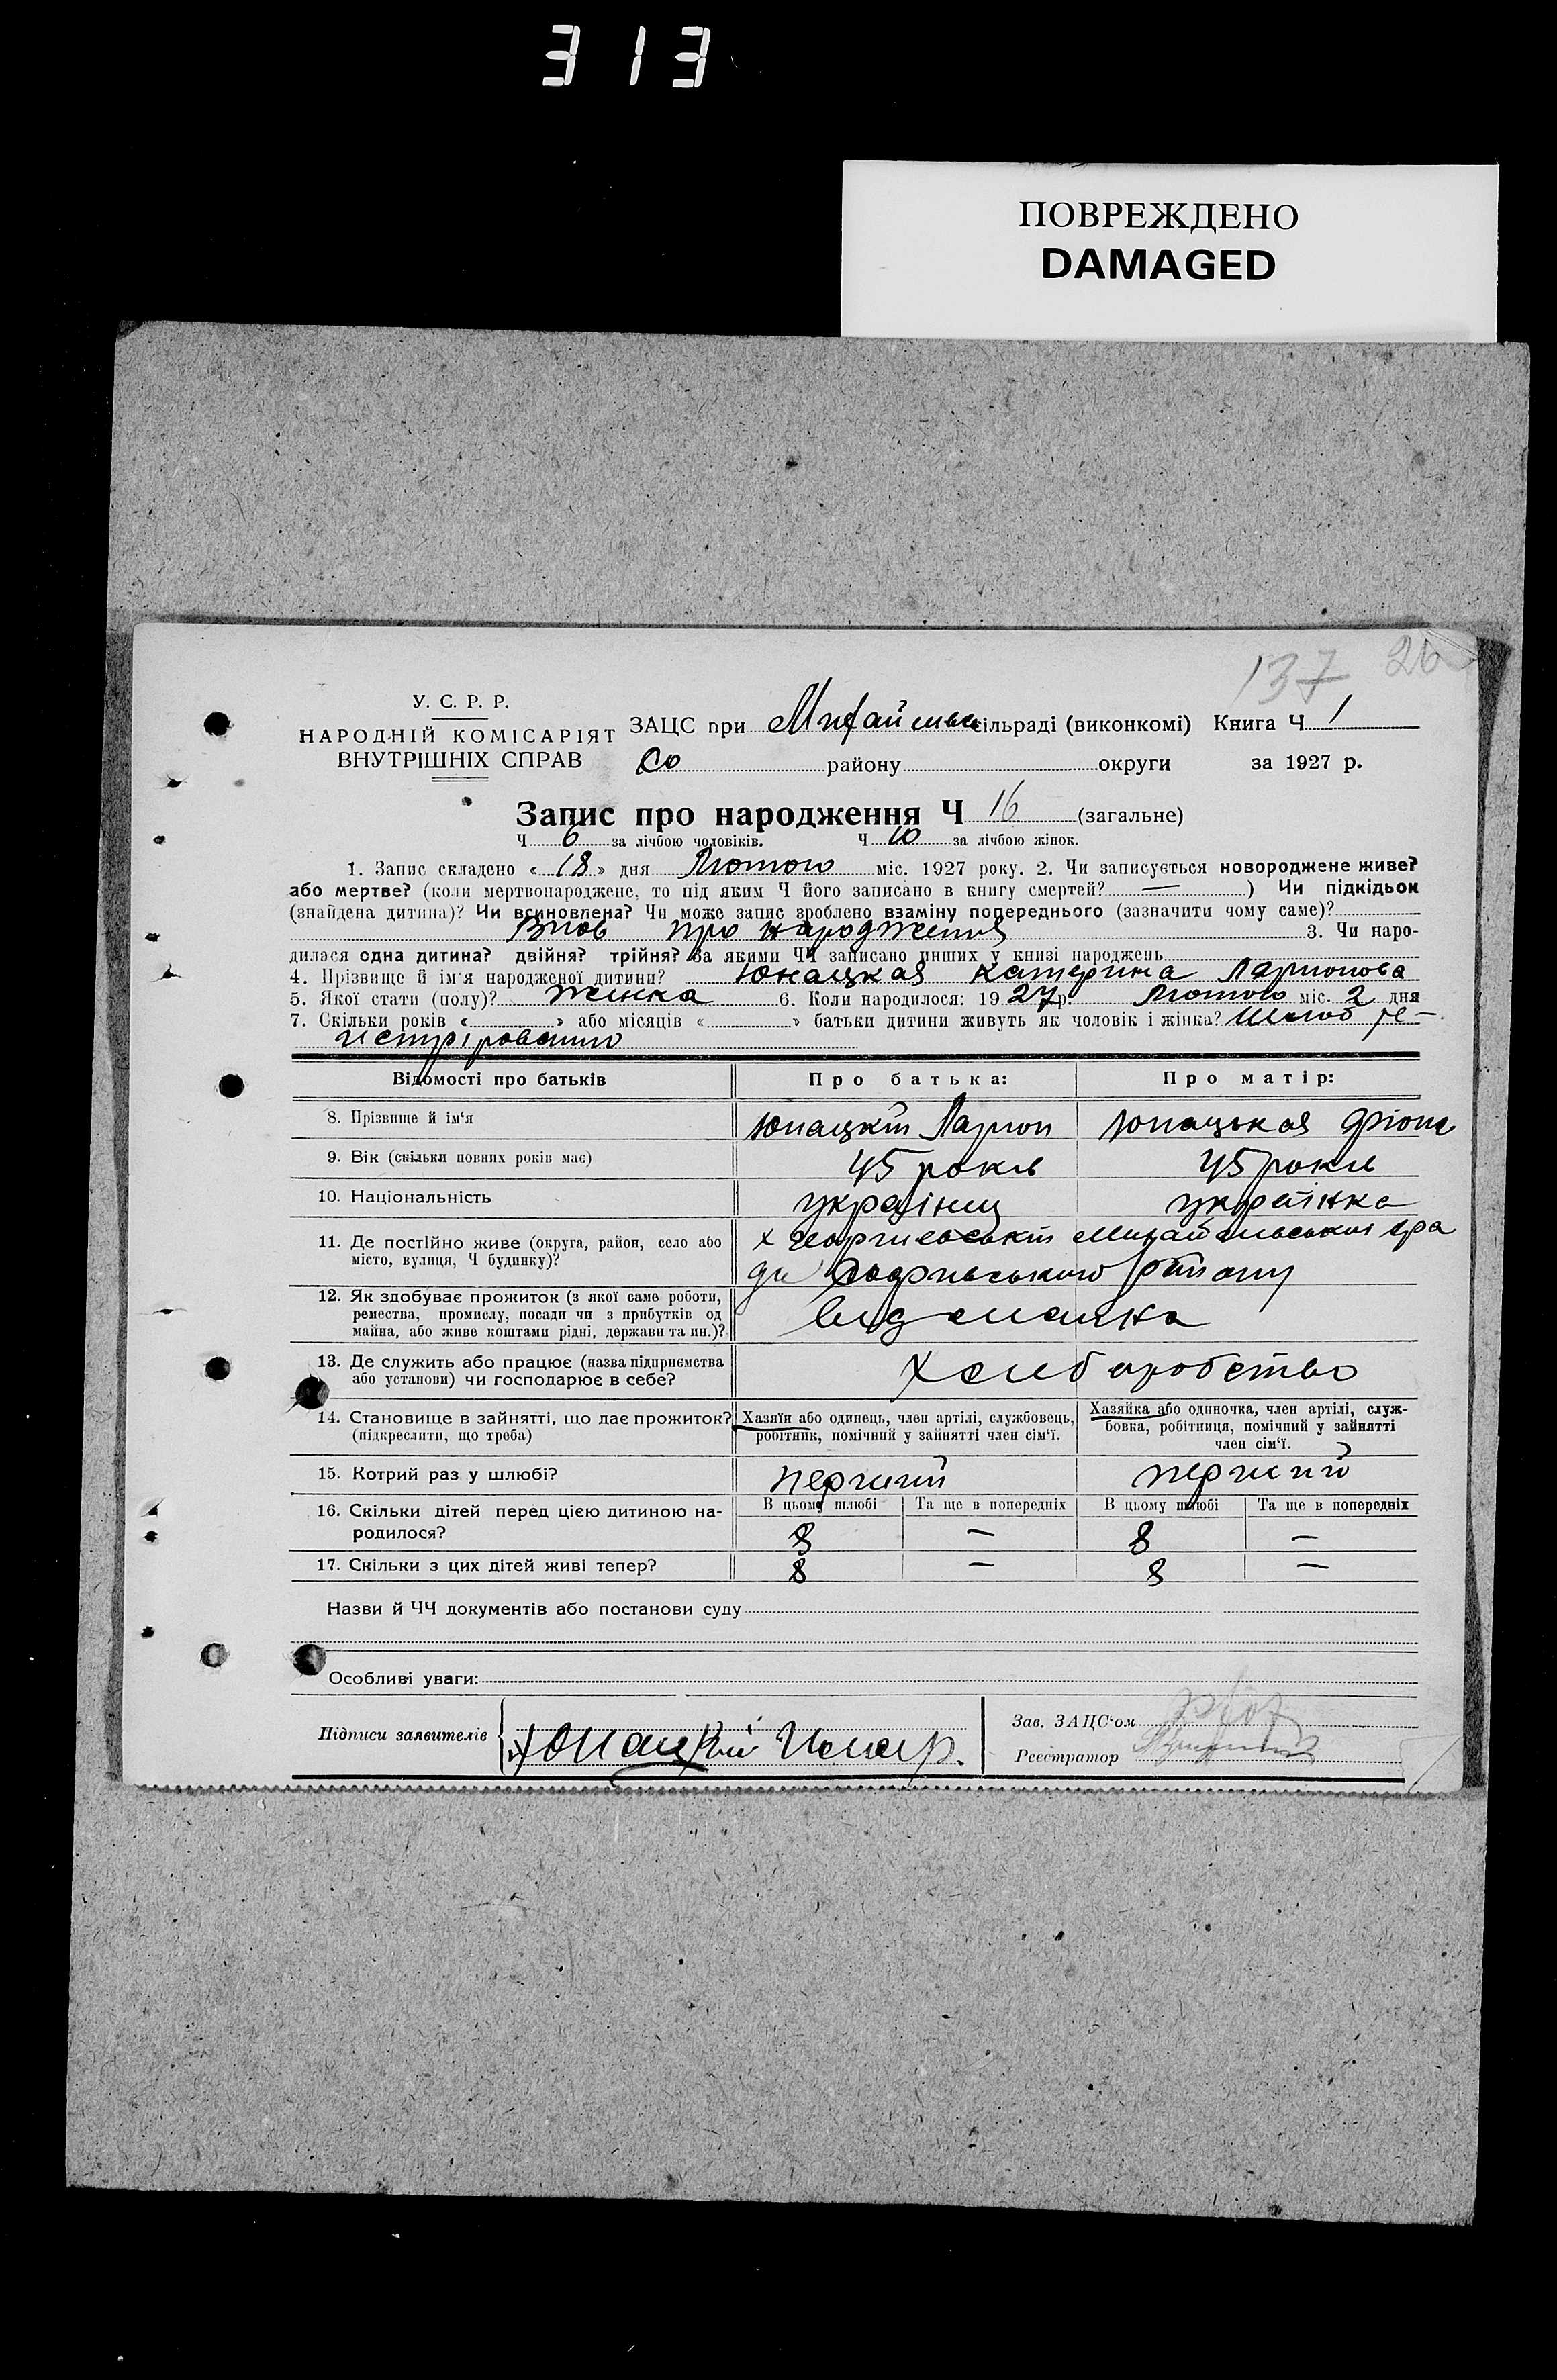 313
ПОВРЕЖДЕНО
DAMAGED
137 26
У. С. Р. Р.
НАРОДНІЙ КОМІСАРІЯТ
ВНУТРІШНІХ СПРАВ
ЗАЦС при Михайлівс сільраді (виконкомі) Книга Ч 1
району округи за 1927 р.
Запис про народження Ч 16 (загальне)
Ч 6 за лічбою чоловіків. Ч 10 за лічбою жінок.
1. Запис складено « 18 » дня Лютого міс. 1927 року. 2. Чи записується новороджене живе?
або мертве? (коли мертвонароджене, то під яким Ч його записано в книгу смертей? — ) Чи підкідьок
(знайдена дитина)? Чи всиновлена? Чи може запис зроблено взаміну попереднього (зазначити чому саме)?
Вновь про народження 3. Чи наро-
дилася одна дитина? двійня? трійня? За якими ЧЧ записано инших у книзі народжень
4. Прізвище й ім'я народженої дитини? Юнацкая Катерина Ларионова
5. Якої стати (полу)? Жинка 6. Коли народилося: 1927 р. Лютого міс. 2 дня
7. Скільки років « » або місяців « » батьки дитини живуть як чоловік і жінка? Шлюб ре-
гистріровано
Відомості про батьків Про батька: Про матір:
8. Прізвище й ім'я Юнацкий Ларион Юнацькая
9. Вік (скільки повних років має) 45 рокив 45 рокив
10. Національність українец українка
11. Де постійно живе (округа, район, село або
місто, вулиця, Ч будинку)?
х Георгиевський Михайливськой сра
ди району
12. Як здобуває прожиток (з якої саме роботи,
ремества, промислу, посади чи з прибутків од
майна, або живе коштами рідні, держави та ин.)?
13. Де служить або працює (назва підприємства
або установи) чи господарює в себе?
Хлиборобство
14. Становище в зайнятті, що дає прожиток?
(підкреслити, що треба)
Хазяїн або одинець, член артілі, службовець,
робітник, помічний у зайнятті член сім'ї.
Хазяйка або одиночка, член артілі, служ-
бовка, робітниця, помічний у зайнятті
член сім'ї.
15. Котрий раз у шлюбі? перший перший
16. Скільки дітей перед цією дитиною на-
родилося?
В цьому шлюбі Та ще в попередніх В цьому шлюбі Та ще в попередніх
8 — 8 —
17. Скільки з цих дітей живі тепер? 8 — 8 —
Назви й ЧЧ документів або постанови суду
Особливі уваги:
Підписи заявителів Юнацкий
Зав. ЗАЦС'ом
Реєстратор